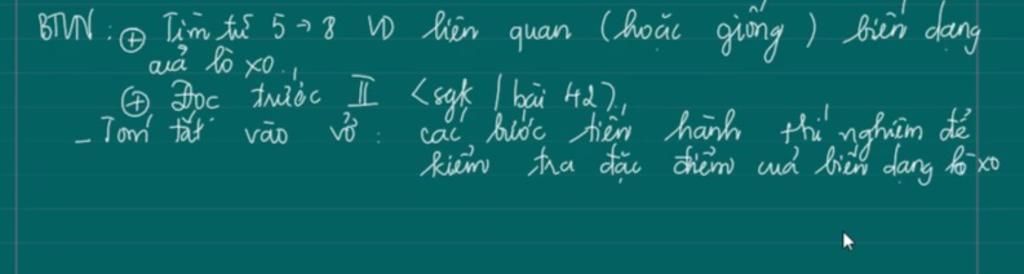 BTVN: ⊕ Tìm từ 5 → 8 VD liên quan (hoặc giống) biến dạng
của lò xo.
⊕ Đọc trước II <sgk / bài 42>.
- Tóm tắt vào vở: các bước tiến hành thí nghiệm để
kiểm tra đặc điểm của biến dạng lò xo